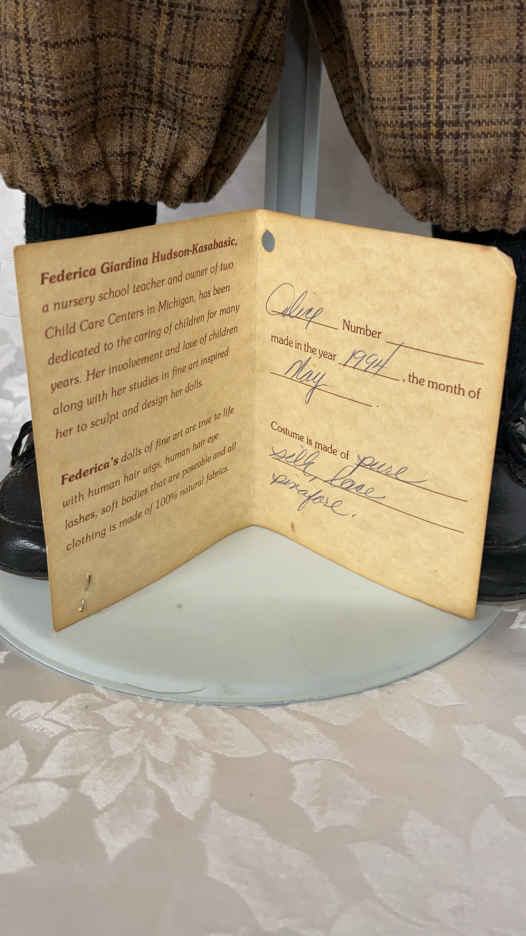 Federica Giardina Hudson-Kasabasic,
a nursery school teacher and owner of two
Child Care Centers in Michigan, has been
dedicated to the caring of children for many
years. Her involvement and love of children
along with her studies in fine art inspired
her to sculpt and design her dolls.
Federica's dolls of fine art are true to life
with human hair wigs, human hair eye
lashes, soft bodies that are poseable and all
clothing is made of 100% natural fabrics.
Number
made in the year 1994, the month of
May.
Costume is made of pure
silk, lace
pinafore.